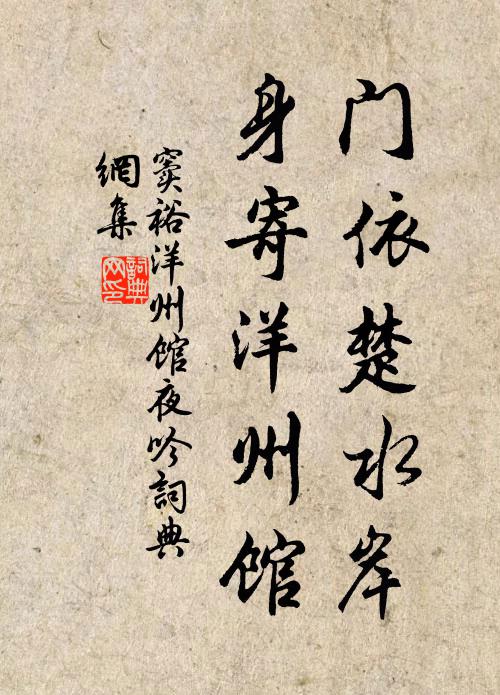 门依楚水岸
身寄洋州馆
窦裕洋州馆夜吟詞典
網集
詞典
网印